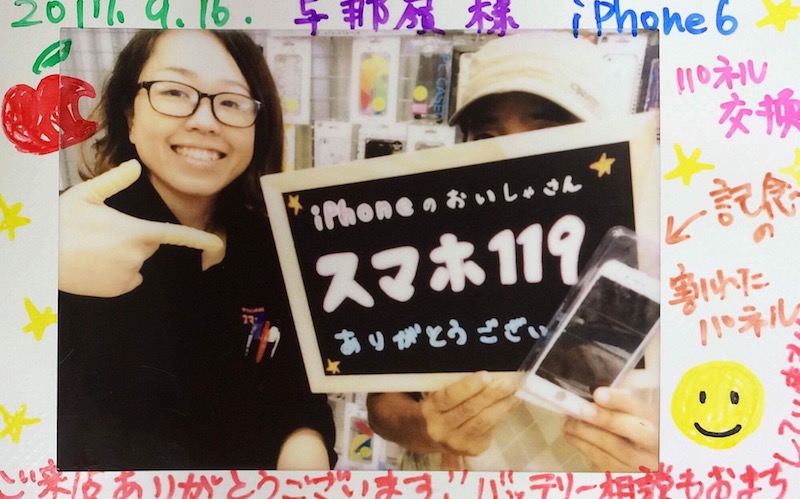 2017. 9. 16. 与那嶺 様 iPhone6
パネル
交換
記念
の
割れた
パネル
iPhoneのおいしゃさん
スマホ119
ありがとうござい
ご来店ありがとうございます!! バッテリー相談もおまち
してい